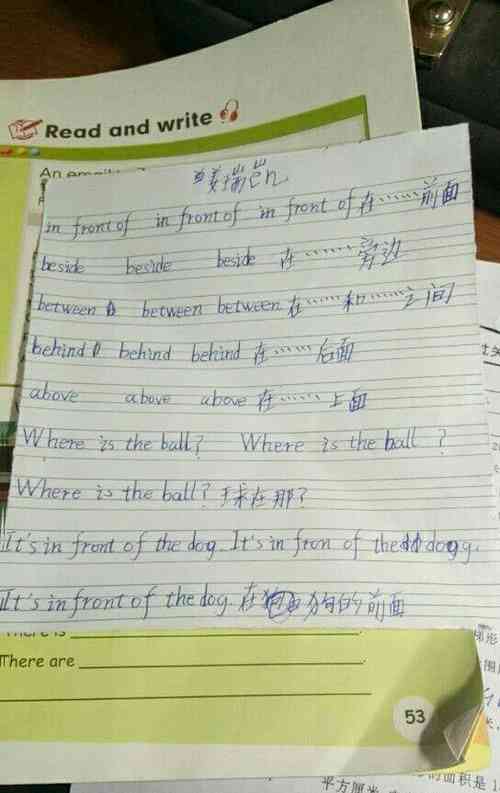 Read and write
in front of in front of in front of 在……前面
beside beside beside 在……旁边
between between between 在……和……之间
behind behind behind 在……后面
above above above 在……上面
Where is the ball? Where is the ball ?
Where is the ball? 球在那?
It's in front of the dog. It's in fron of the dog.
It's in front of the dog. 在狗的前面
There is
There are
53
平方厘米
的面积是